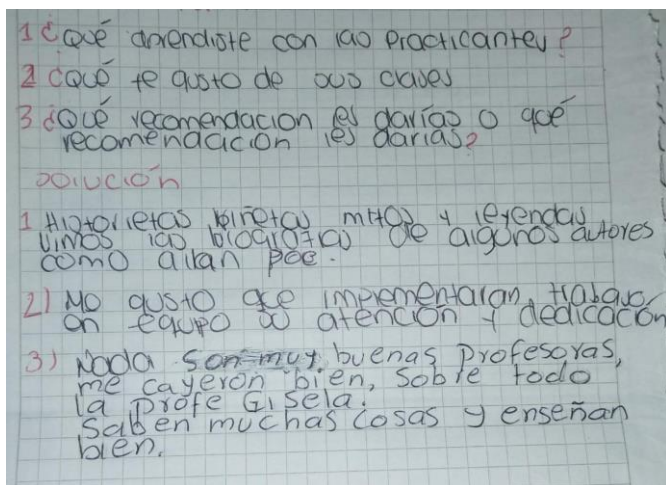 1 ¿Qué aprendiste con las Practicantes?
2 ¿Qué te gusto de sus clases
3 ¿Qué recomendacion les darías o qué
recomendación les darías?
solución
1 Historietas viñetas mitos y leyendas
vimos las biografias de algunos autores
como allan poe.
2) Me gusto que implementaran trabajo
en equipo su atención y dedicación
3) Nada son muy buenas Profesoras,
me cayeron bien, sobre todo
la Profe Gisela.
Saben muchas cosas y enseñan
bien.